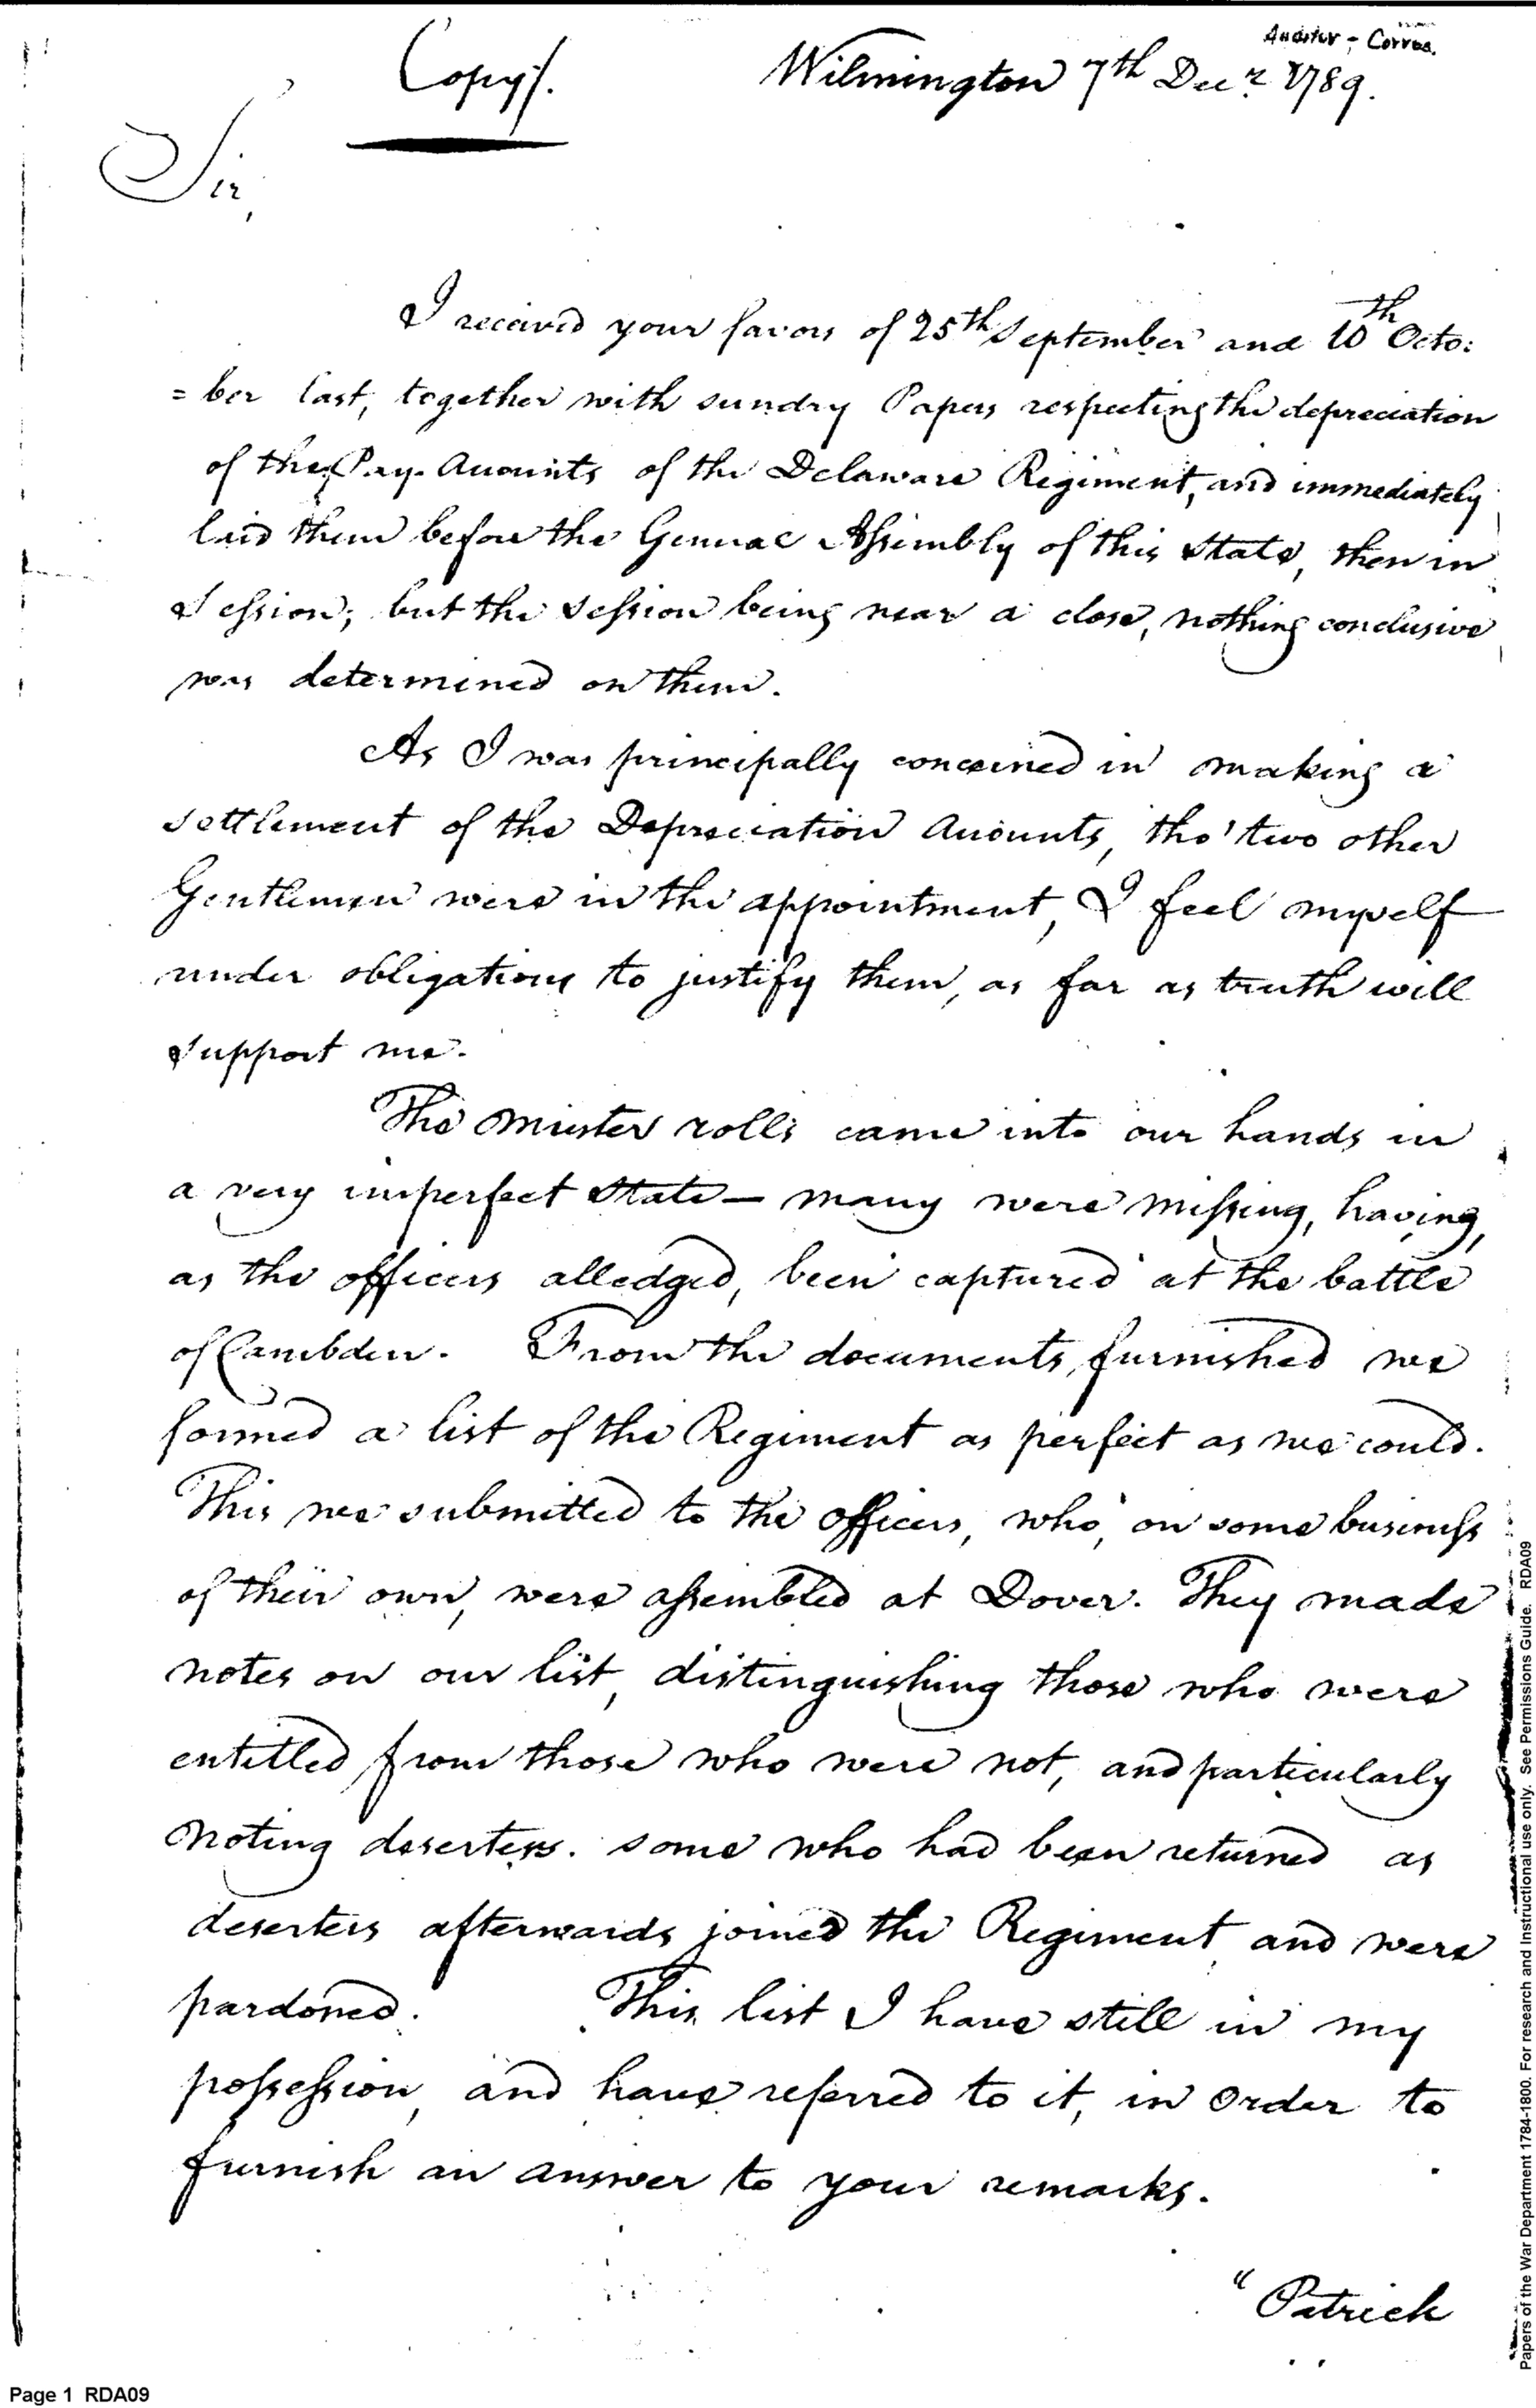 Auditor - Corres.
Copy/.
Wilmington 7th Decr 1789.
Sir,
I received your favors of 25th September and 10th Octo:
=ber last, together with sundry Papers respecting the depreciation
of the Pay Accounts of the Delaware Regiment, and immediately
laid them before the General Assembly of this State, then in
Session; but the Session being near a close, nothing conclusive
was determined on them.
As I was principally concerned in making a
settlement of the Depreciation Accounts, tho' two other
Gentlemen were in the appointment, I feel myself
under obligations to justify them, as far as truth will
support me.
The Muster rolls came into our hands in
a very imperfect State — many were missing, having,
as the officers alledged, been captured at the battle
of Cambden. From the documents furnished we
formed a list of the Regiment as perfect as we could.
This we submitted to the officers, who, on some business
of their own, were assembled at Dover. They made
notes on our list, distinguishing those who were
entitled from those who were not, and particularly
noting deserters. some who had been returned as
deserters afterwards joined the Regiment and were
pardoned. This list I have still in my
possession, and have referred to it, in order to
furnish an answer to your remarks.
"Patrick
Page 1 RDA09
Papers of the War Department 1784-1800. For research and instructional use only. See Permissions Guide. RDA09